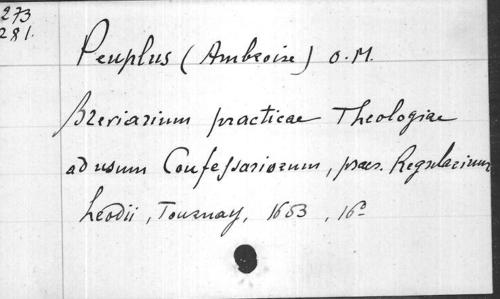 273
281.
Peuplus (Ambroise) O.M.
Breviarium practicae Theologiae
ad usum Confessariorum, praes. Regularium
Leodii, Tournay, 1653, 16º